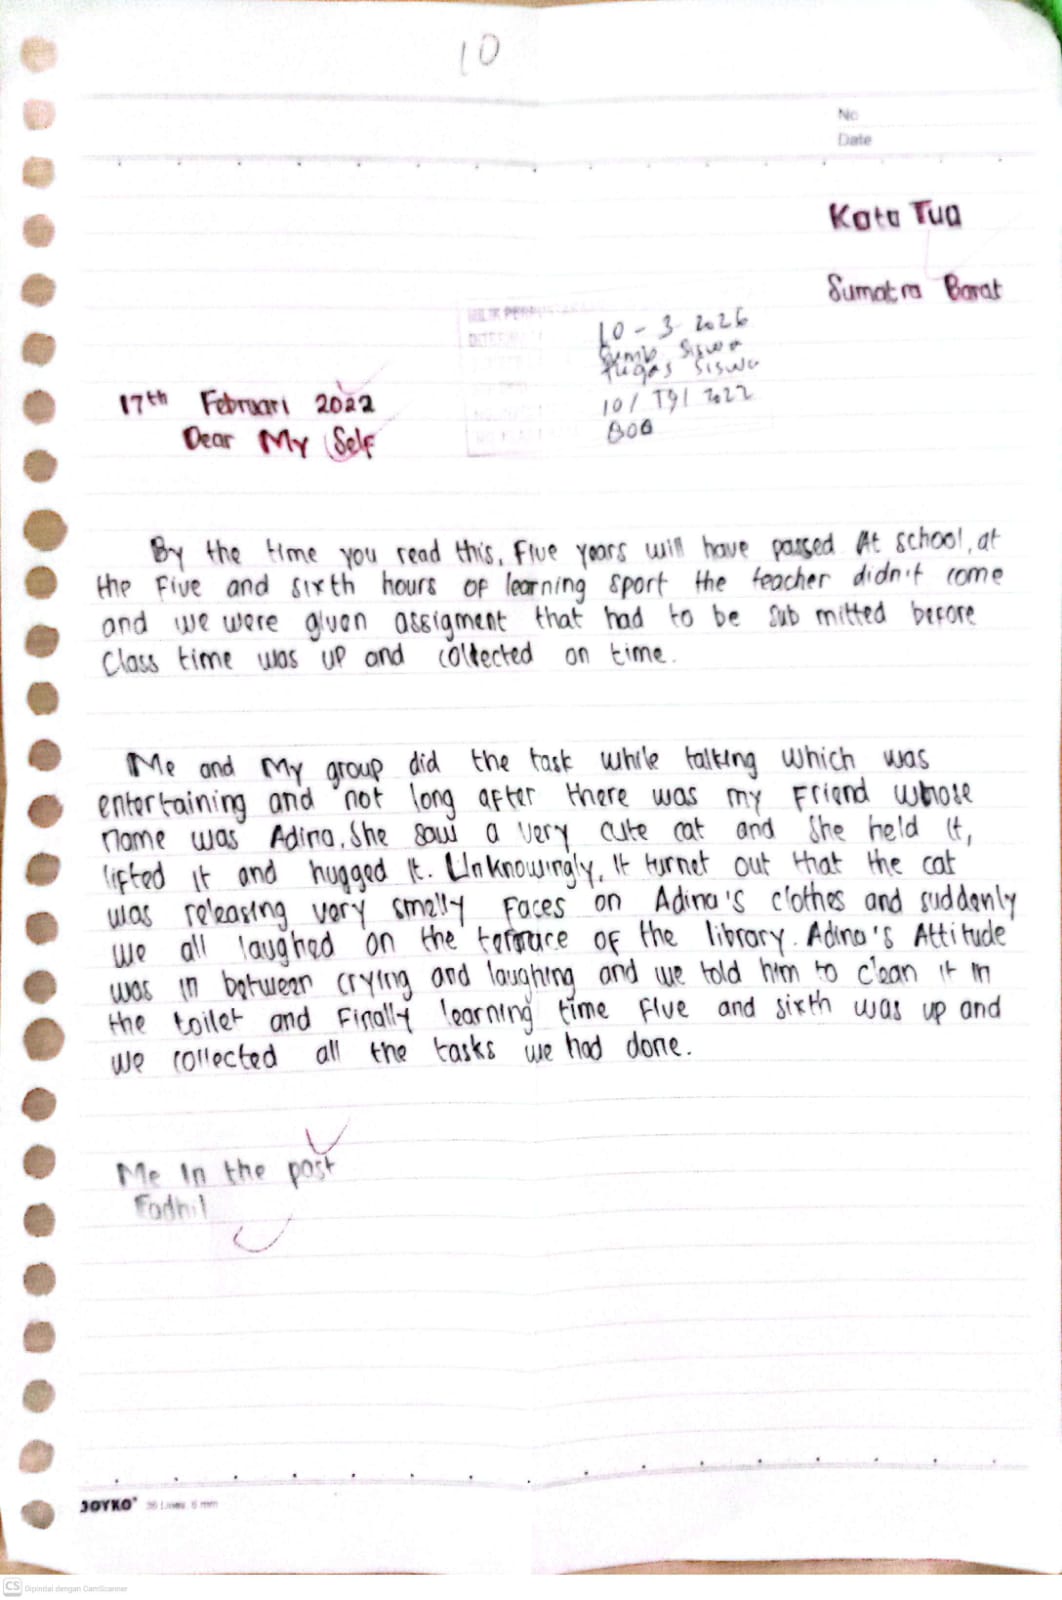 10
No
Date
Koto Tua
Sumatra Barat
10 - 3 2026
Siswa
Tugas Siswa
10 / TS / 2022
800
17th Februari 2022
Dear My Self
By the time you read this, Five years will have passed At school, at
the Five and sixth hours of learning sport the teacher didn't come
and we were given assigment that had to be sub mitted before
Class time was up and collected on time.
Me and My group did the task while talking which was
entertaining and not long after there was my Friend whose
name was Adina. She saw a very cute cat and She held it,
lifted it and hugged it. Unknowingly, it turnet out that the cat
was releasing very smelly Faces on Adina's clothes and suddenly
we all laughed on the terrace of the library. Adina's Attitude
was in between crying and laughing and we told him to clean it in
the toilet and Finally learning time five and sixth was up and
we collected all the tasks we had done.
Me In the past
Fadhil
JOYKO 36 Lines 6 mm
CS Dipindai dengan CamScanner